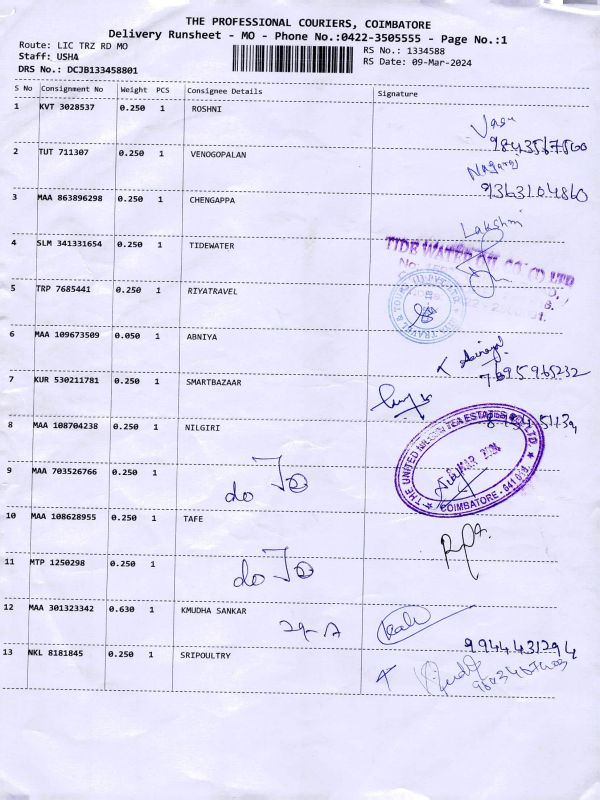 THE PROFESSIONAL COURIERS, COIMBATORE
Delivery Runsheet - MO - Phone No.:0422-3505555 - Page No.:1
Route: LIC TRZ RD MO
RS No.: 1334588
Staff: USHA
RS Date: 09-Mar-2024
DRS No.: DCJB133458801
S No Consignment No Weight PCS Consignee Details Signature
1 KVT 3028537 0.250 1 ROSHNI
Vasu
9843567500
2 TUT 711307 0.250 1 VENOGOPALAN
Nagaraj
9363104860
3 MAA 863896298 0.250 1 CHENGAPPA
Lakshmi
4 SLM 341331654 0.250 1 TIDEWATER
TIDE WATER OIL CO. LTD
5 TRP 7685441 0.250 1 RIYATRAVEL
6 MAA 109673509 0.050 1 ABNIYA
7695965232
7 KUR 530211781 0.250 1 SMARTBAZAAR
8 MAA 108704238 0.250 1 NILGIRI
THE UNITED NILGIRI TEA ESTATES CO. LTD.
COIMBATORE - 641 018
9 MAA 703526766 0.250 1
do To
10 MAA 108628955 0.250 1 TAFE
11 MTP 1250298 0.250 1
do To
12 MAA 301323342 0.630 1 KMUDHA SANKAR
9944431294
13 NKL 8181845 0.250 1 SRIPOULTRY